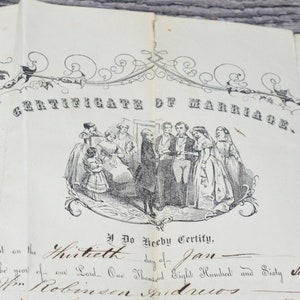 CERTIFICATE OF MARRIAGE.
I Do Heeby Certify,
t on the Thirtieth day of Jan
he year of our Lord One Thousand Eight Hundred and Sixty
Wm Robinson Andrews